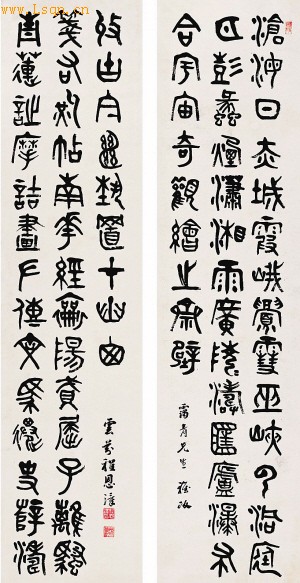 www.Lsqn.cn
滄海日赤城霞峨嵋雪巫峽雲洞庭
月彭蠡煙瀟湘雨廣陵濤匡廬瀑布
合宇宙奇觀繪吾齋壁
青先生雅政
青蓮詩摩詰畫左傳文馬遷史薛濤
箋右軍帖南華經相如賦屈子離騷
收古今絕藝置我山窗
雲芬程恩澤